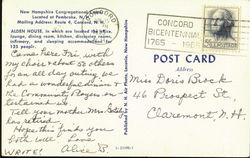 New Hampshire Congregational
Located at Pembroke, N.H.
Mailing Address: Route 4, Concord, N.H.
ALDEN HOUSE, in which are located the office,
lounge, dining room, kitchen, discussion room,
library, and sleeping accommodations for
125 people.
CONCORD
BICENTENNIAL
1765
POST CARD
Address
Came here Fri.
my choice about 50 others
for an all day outing we
had a wonderful dinner &
the Community Players
entertained us
Tell your mother Mrs.
has retired
Hope this finds you
both well. Love
WRITE! Alice B.
Miss Doris Brock
46 Prospect St.
Claremont N.H.